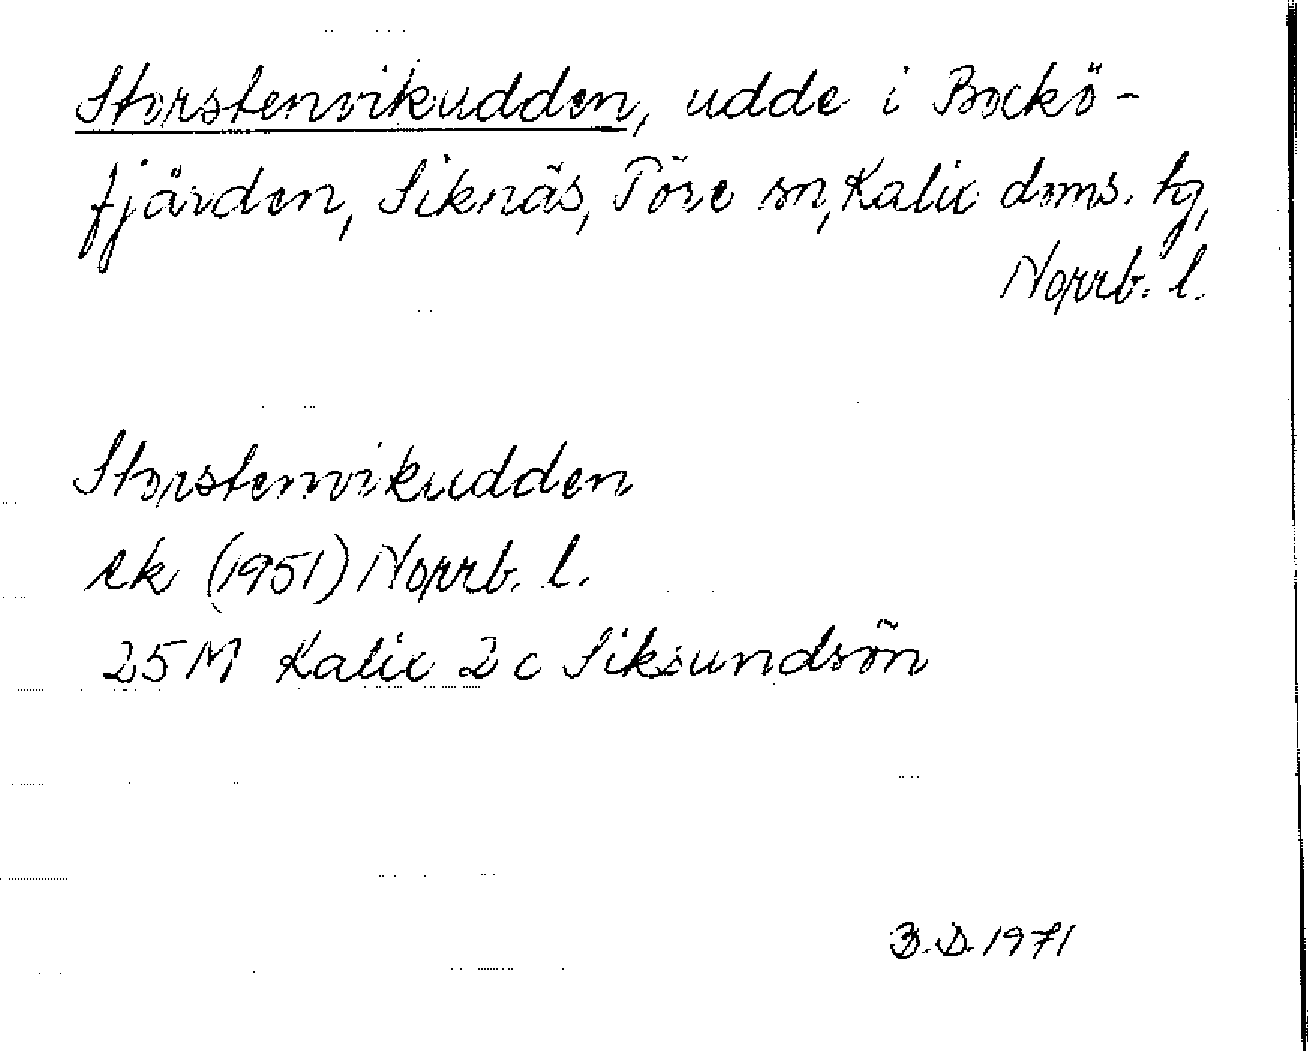 Storstenvikudden, udde i Bockö-
fjärden, Siknäs, Töre sn, Kalix doms. tg,
Norrb. l.
Storstenvikudden
ek (1951) Norrb. l.
25 M Kalix 2 c Siksundsön
B.D. 1971